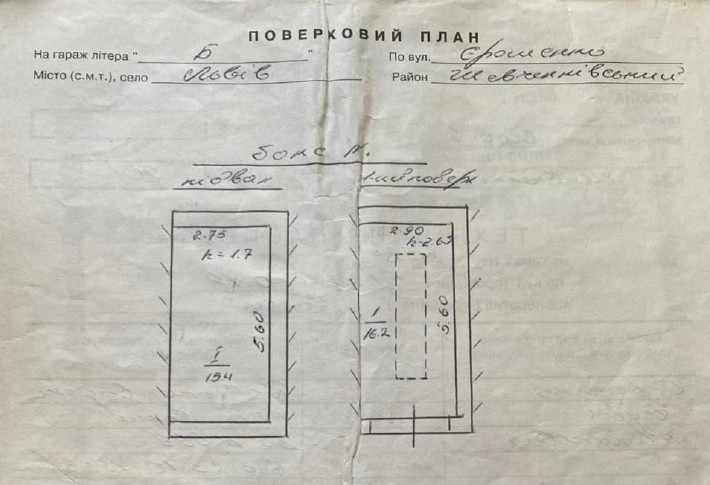 ПОВЕРХОВИЙ ПЛАН
На гараж літера " Б " По вул. Єрошенко
Місто (с.м.т.), село Львів Район Шевченківський
бокс N.
підвал 1-ий поверх
2.75 2.90
h=1.7 h-2.63
5.60 5.60
I 1
15.4 16.2